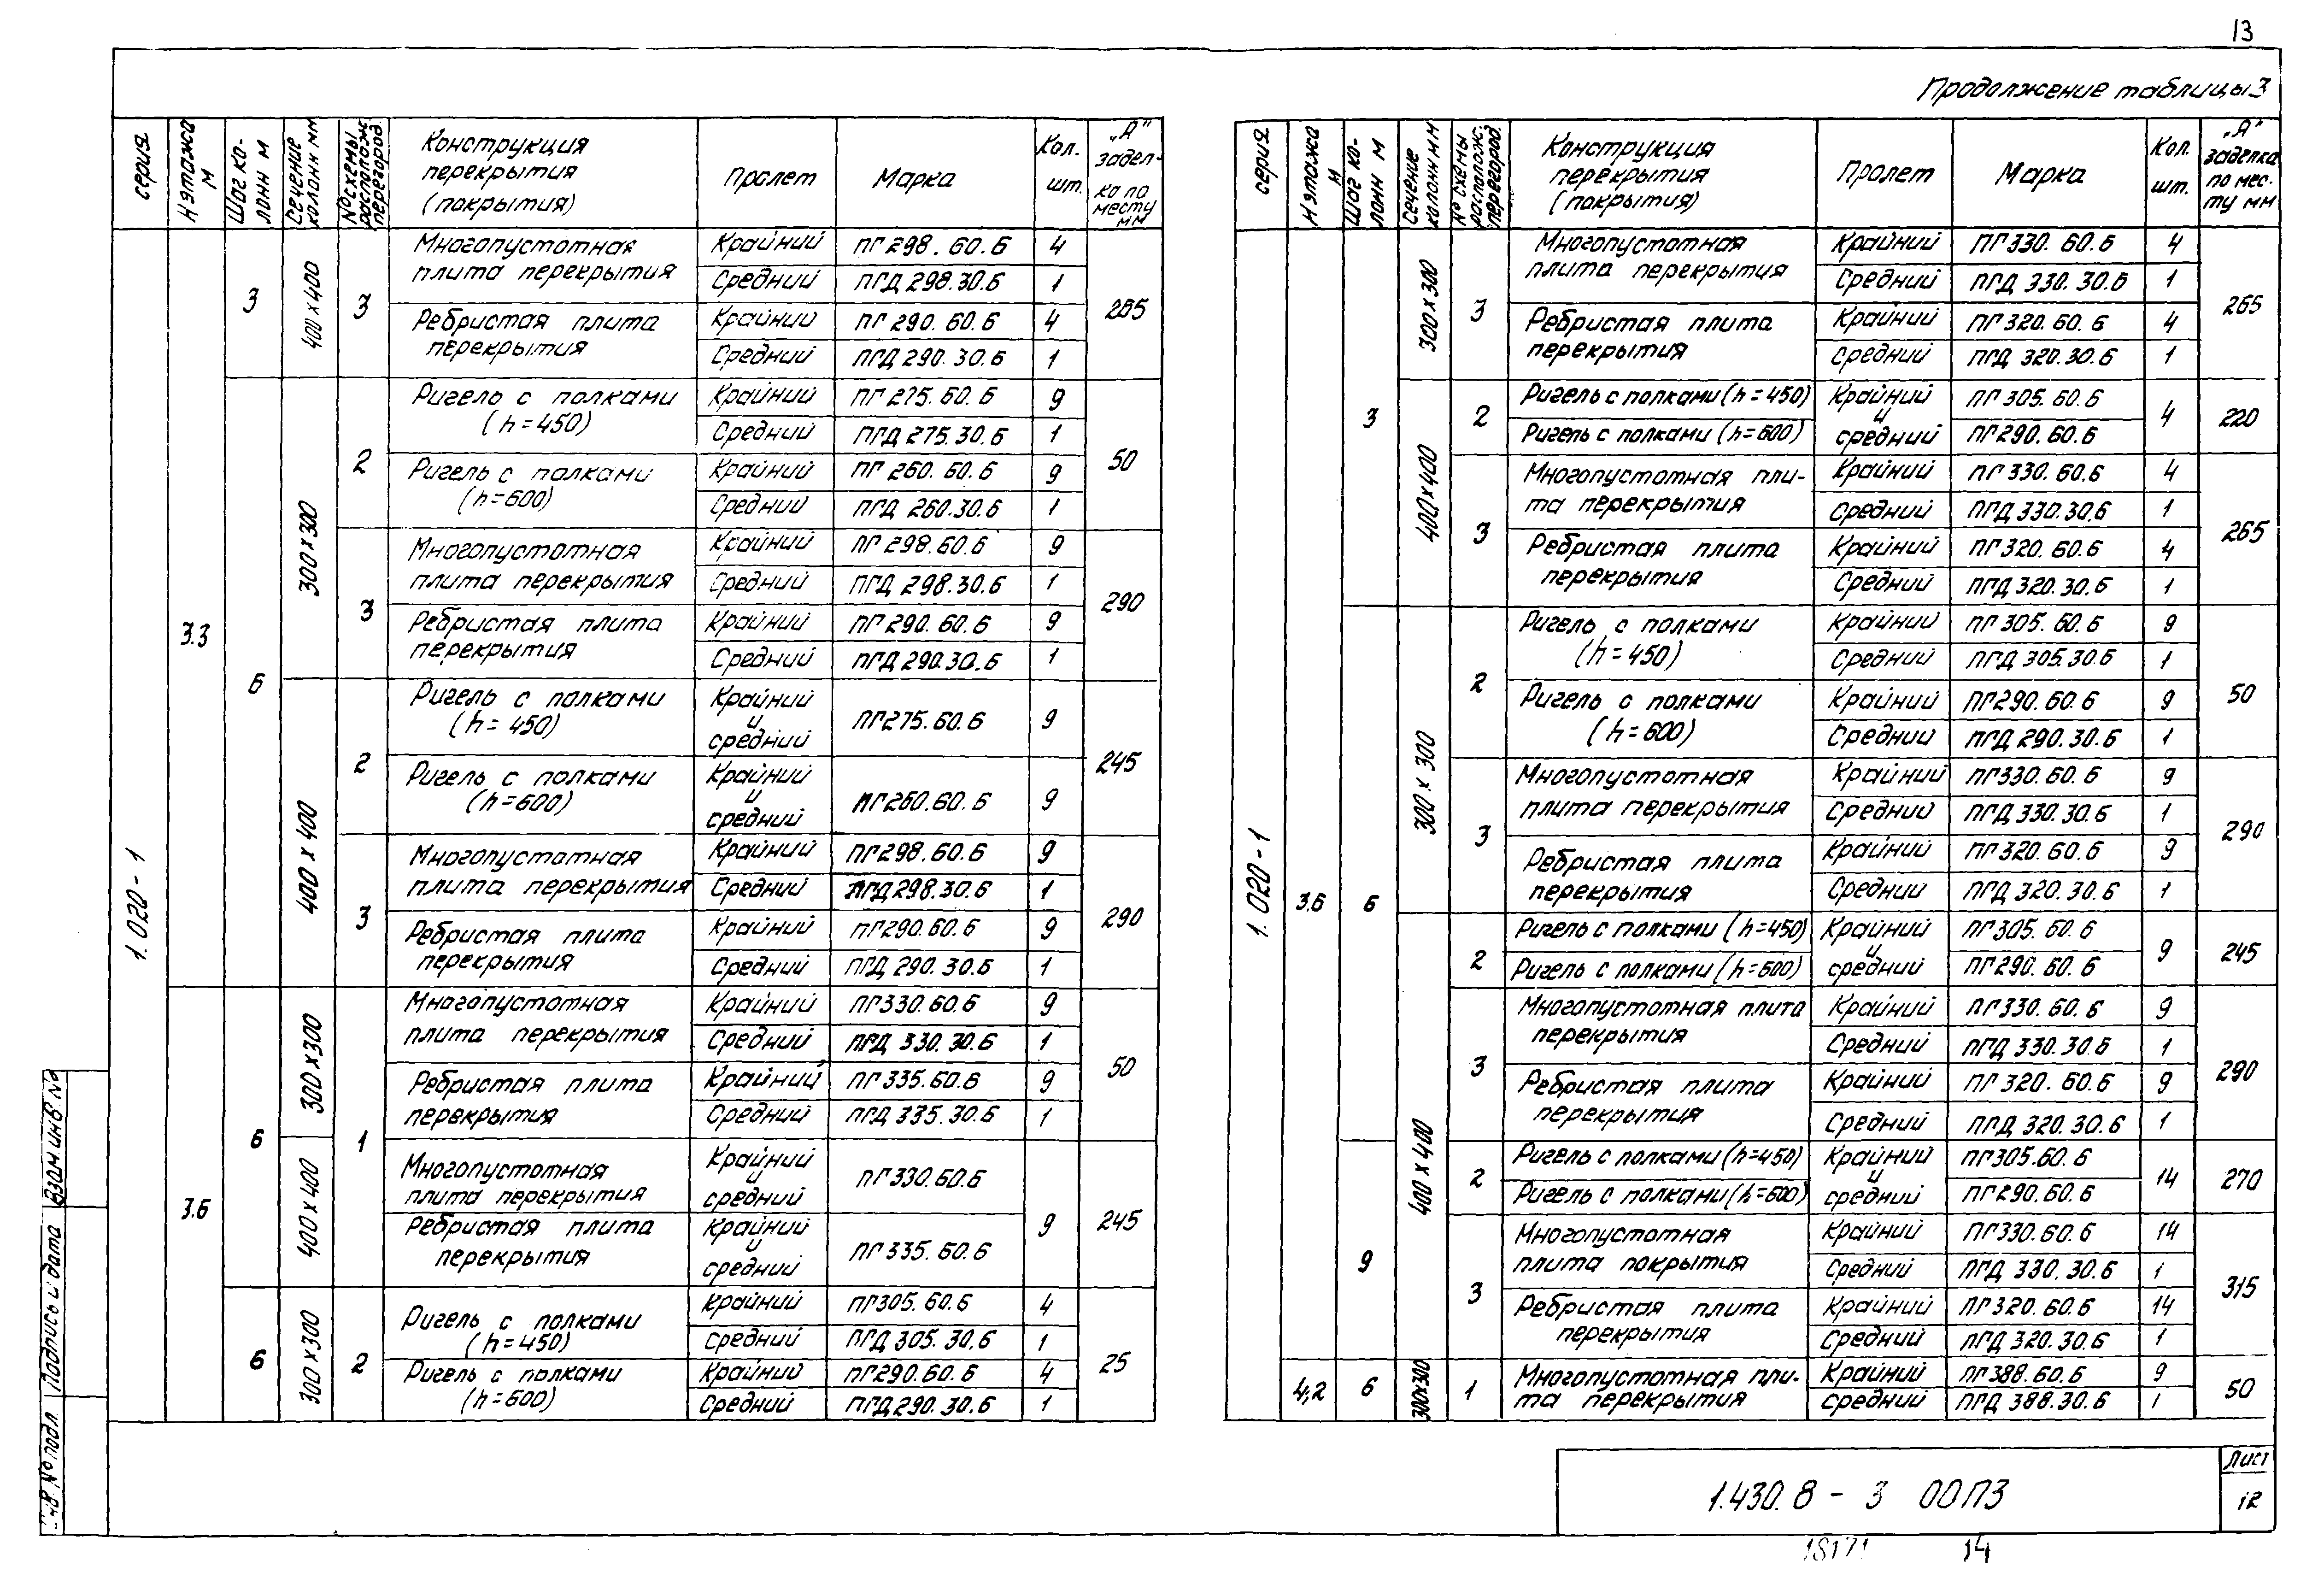 13
Продолжение таблицы 3
серия
Н этажа м
Шаг колонн м
Сечение колонн мм
№ схемы располож. перегород.
Конструкция перекрытия (покрытия)
Пролет
Марка
Кол. шт.
„А" заделка по месту мм
1.020-1
3.3
3
400х400
3
Многопустотная плита перекрытия
Крайний ПГ298.60.6 4
Средний ПГД 298.30.6 1
Ребристая плита перекрытия
Крайний ПГ 290.60.6 4
Средний ПГД 290.30.6 1
265
6
300х300
2
Ригель с полками (h=450)
Крайний ПГ 275.60.6 9
Средний ПГД 275.30.6 1
Ригель с полками (h=600)
Крайний ПГ 260.60.6 9
Средний ПГД 260.30.6 1
50
3
Многопустотная плита перекрытия
Крайний ПГ 298.60.6 9
Средний ПГД 298.30.6 1
Ребристая плита перекрытия
Крайний ПГ 290.60.6 9
Средний ПГД 290.30.6 1
290
400 х 400
2
Ригель с полками (h=450)
Крайний и средний ПГ275.60.6 9
Ригель с полками (h=600)
Крайний и средний ПГ260.60.6 9
245
3
Многопустотная плита перекрытия
Крайний ПГ298.60.6 9
Средний ПГД298.30.6 1
Ребристая плита перекрытия
Крайний ПГ290.60.6 9
Средний ПГД 290.30.6 1
290
3.6
6
300х300
1
Многопустотная плита перекрытия
Крайний ПГ330.60.6 9
Средний ПГД 330.30.6 1
Ребристая плита перекрытия
Крайний ПГ335.60.6 9
Средний ПГД 335.30.6 1
50
400 х 400
Многопустотная плита перекрытия
Крайний и средний ПГ330.60.6
Ребристая плита перекрытия
Крайний и средний ПГ335.60.6
9
245
6
300х300
2
Ригель с полками (h=450)
Крайний ПГ305.60.6 4
Средний ПГД 305.30.6 1
Ригель с полками (h=600)
Крайний ПГ290.60.6 4
Средний ПГД290.30.6 1
25
серия
Н этажа м
Шаг колонн м
Сечение колонн мм
№ схемы располож. перегород.
Конструкция перекрытия (покрытия)
Пролет
Марка
Кол. шт.
„А" заделка по месту мм
1.020-1
3.6
3
300х300
3
Многопустотная плита перекрытия
Крайний ПГ330.60.6 4
Средний ПГД 330.30.6 1
Ребристая плита перекрытия
Крайний ПГ320.60.6 4
Средний ПГД 320.30.6 1
265
400х400
2
Ригель с полками (h=450)
Ригель с полками (h=600)
Крайний и средний
ПГ 305.60.6
ПГ290.60.6
4
220
3
Многопустотная плита перекрытия
Крайний ПГ 330.60.6 4
Средний ПГД 330.30.6 1
Ребристая плита перекрытия
Крайний ПГ320.60.6 4
Средний ПГД 320.30.6 1
265
6
300 х 300
2
Ригель с полками (h=450)
Крайний ПГ 305.60.6 9
Средний ПГД 305.30.6 1
Ригель с полками (h=600)
Крайний ПГ290.60.6 9
Средний ПГД 290.30.6 1
50
3
Многопустотная плита перекрытия
Крайний ПГ330.60.6 9
Средний ПГД 330.30.6 1
Ребристая плита перекрытия
Крайний ПГ320.60.6 9
Средний ПГД 320.30.6 1
290
400 х 400
2
Ригель с полками (h=450)
Ригель с полками (h=600)
Крайний и средний
ПГ305.60.6
ПГ290.60.6
9
245
3
Многопустотная плита перекрытия
Крайний ПГ330.60.6 9
Средний ПГД 330.30.6 1
Ребристая плита перекрытия
Крайний ПГ 320.60.6 9
Средний ПГД 320.30.6 1
290
9
2
Ригель с полками (h=450)
Ригель с полками (h=600)
Крайний и средний
ПГ305.60.6
ПГ290.60.6
14
270
3
Многопустотная плита покрытия
Крайний ПГ330.60.6 14
Средний ПГД 330.30.6 1
Ребристая плита перекрытия
Крайний ПГ320.60.6 14
Средний ПГД 320.30.6 1
315
4,2
6
300х300
1
Многопустотная плита перекрытия
Крайний ПГ388.60.6 9
Средний ПГД 388.30.6 1
50
Взам инв №
Подпись и дата
Инв. № подл.
1.430.8-3 00ПЗ
Лист
12
18171 14